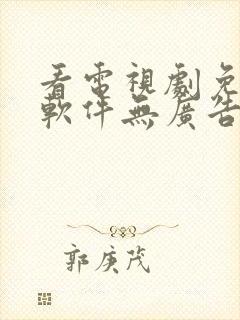 看電視劇免
軟件無廣告
郭庚茂